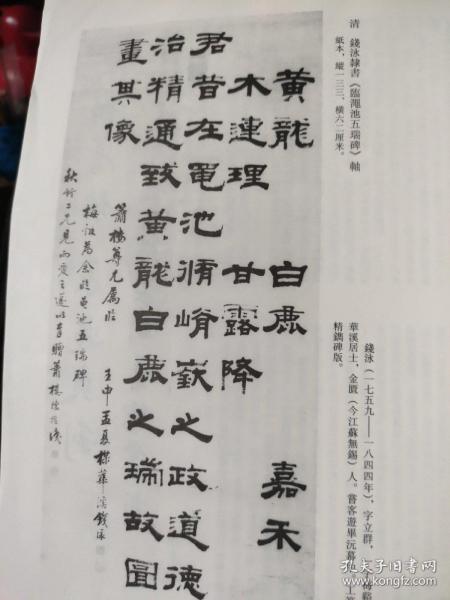 清　錢泳隸書《臨澠池五瑞碑》軸
紙本，縱一三三、橫六二厘米。
錢泳（一七五九——一八四四年），字立群，
華溪居士，金匱（今江蘇無錫）人。嘗客遊畢沅幕
精鐫碑版。
黃龍　白鹿　嘉禾
木連理　甘露降
君昔在黽池脩崤嶔之政道德
治精通致黃龍白鹿之瑞故圖
畫其像
簫樓尊兄屬臨
壬申孟夏楳華溪錢泳
臨黽池五瑞碑
二兄見而愛之遂以奉贈簫樓
孔夫子旧书网